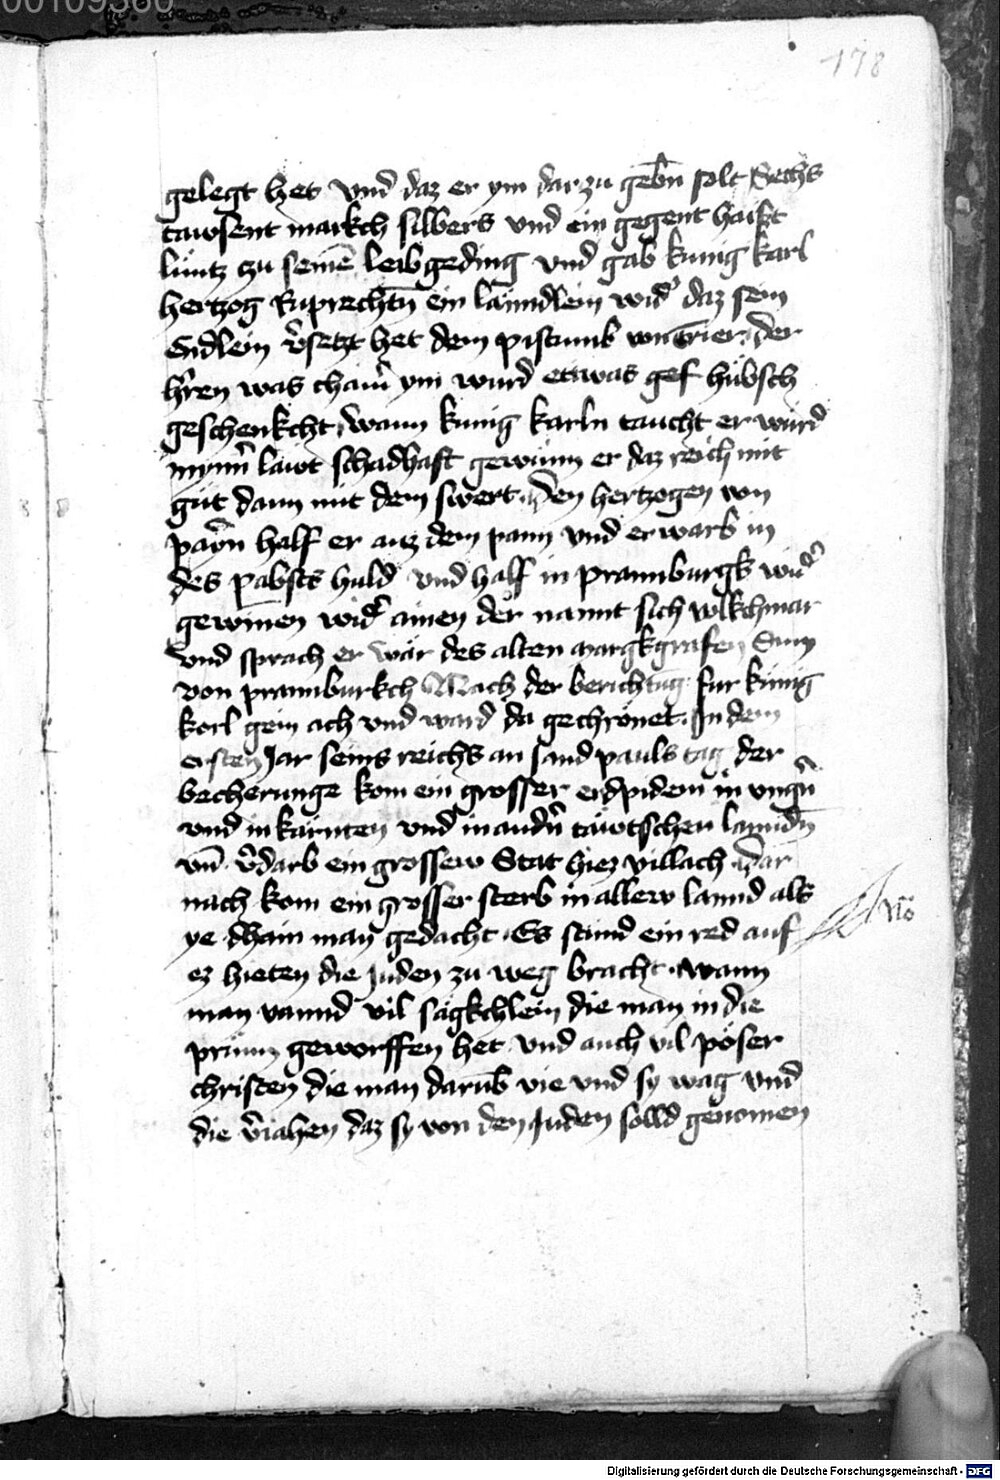 00109360
178
gelegt het vnd daz er ym darzu gebn̄ solt Sechs
tawsent markch silbers vnd ein gegent haist
lüntz zu seinē leibgeding vnd gab kunig karl
hertzog Ruprechtn̄ ein lanndlein wid' daz sein
v̄setzt het dem pistumb von Trier der
h'ren was cham ym wurd etwas gef hübsch
geschenkcht wann kunig karln taucht er wurd
mynn' läwt schadhaft gewunn er daz reich mit
güt dann mit dem swert. Den hertzogen von
payrn half er auz dem pann vnd erwarb in
des pabsts huld vnd half in prannburgk wid'
gewinnen wid' ainen der nannt sich wolkchmar
vnd sprach er wär des alten margkgrafen Sun
von prannburkch Nach der berichtung fur kunig
karl gein ach vnd ward da gechrönet. In dem
ersten Jar seins reichs an sand pauls tag der
becherunge kom ein grosser erdpidem in vngn̄
vnd in karnten vnd in andn̄ täwtschen lanndn̄
vn̄ v̄darb ein grossew Stat hiez villach. Dar
nach kom ein grosser sterb in allew lannd als
ye dhain man gedacht. Es stund ein red auf
No
ez hieten die Juden zu weg bracht. wann
man vannd vil säkchlein die man in die
prunn geworffen het vnd auch vil pöser
christen die man darūb vie vnd sy wag vnd
die v̄iahen daz sy von den Juden solld genomen
Digitalisierung gefördert durch die Deutsche Forschungsgemeinschaft - DFG